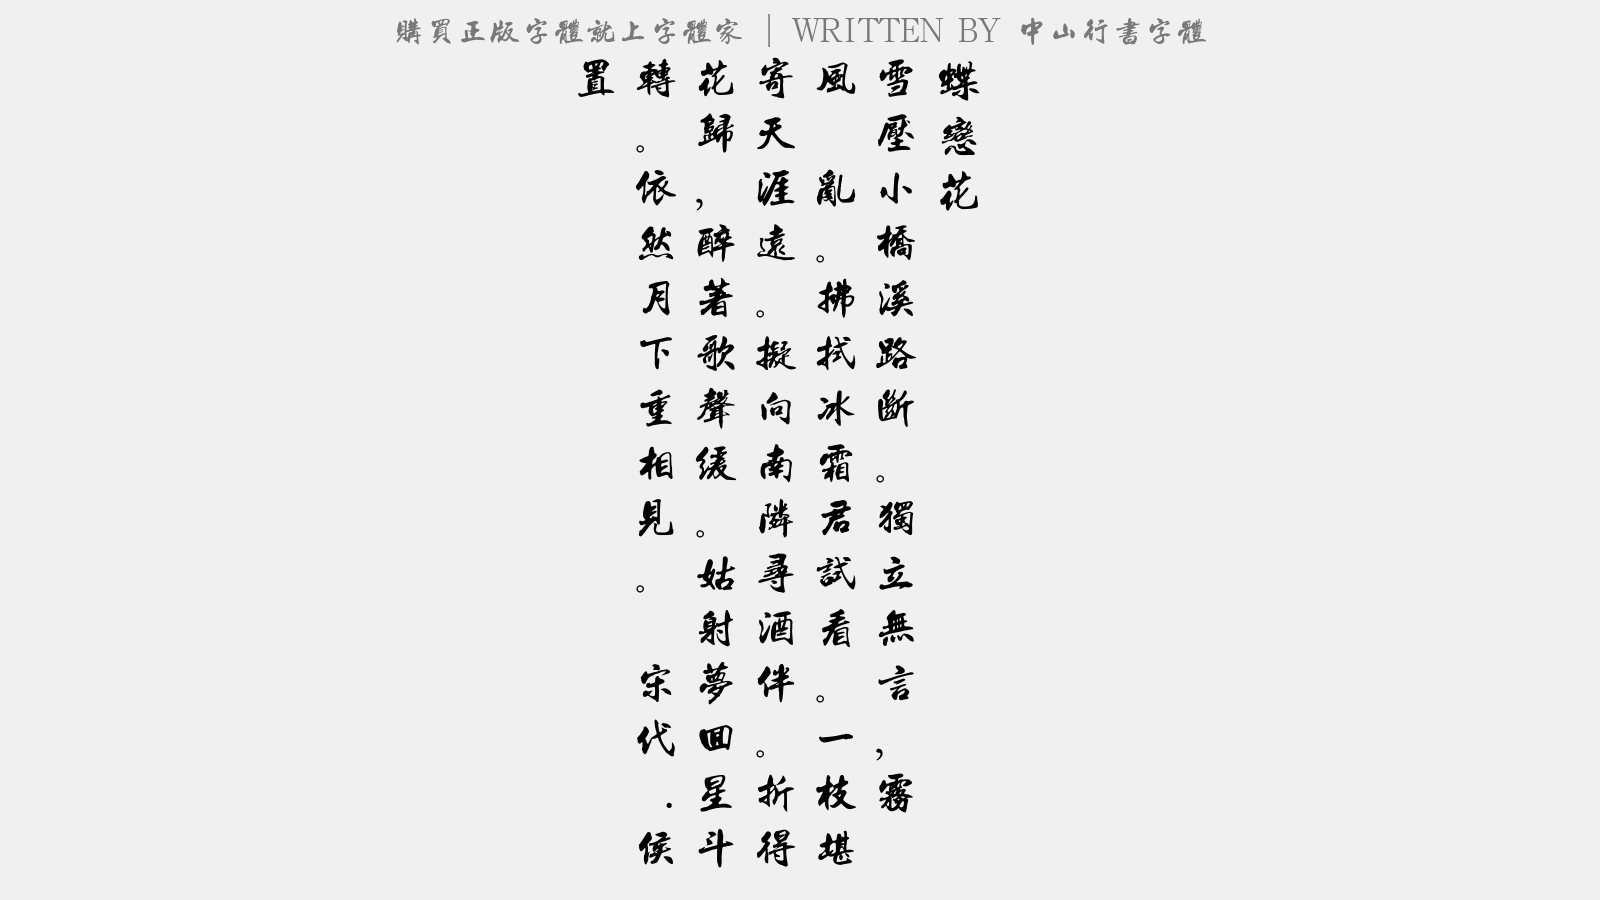 購買正版字體就上字體家 | WRITTEN BY 中山行書字體
蝶戀花
雪壓小橋溪路斷。獨立無言，霧
風 亂。拂拭冰霜君試看。一枝堪
寄天涯遠。擬向南隣尋酒伴。折得
花歸，醉著歌聲緩。姑射夢回星斗
轉。依然月下重相見。 宋代.侯
置